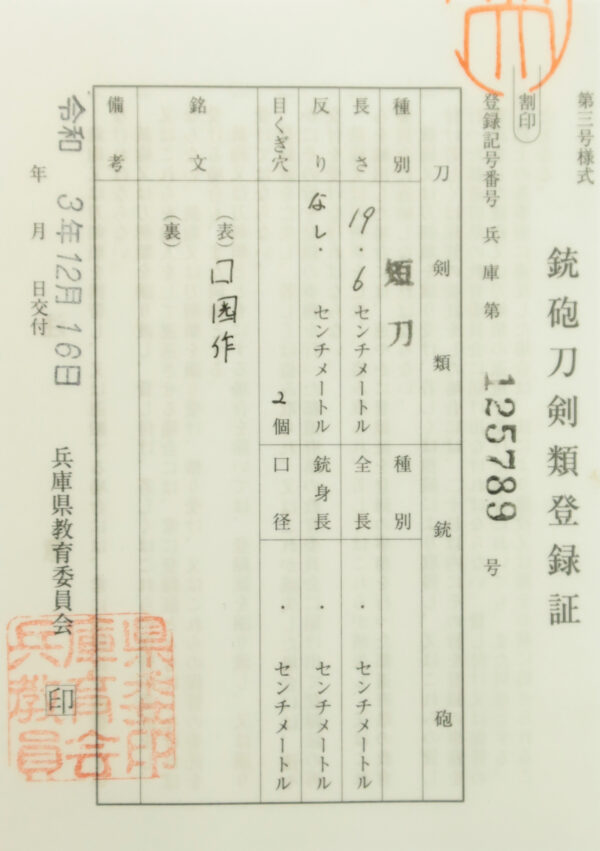 第三号様式
銃砲刀剣類登録証
割印
登録記号番号 兵庫第 125789 号
刀剣類 銃砲
種別 短刀 種別
長さ 19.6 センチメートル 全長 ・ センチメートル
反り なし・ センチメートル 銃身長 ・ センチメートル
目くぎ穴 2個 口径 ・ センチメートル
銘文
(表) 口国作
(裏)
備考
令和 3年12月16日
年 月 日交付
兵庫県教育委員会 印
兵庫県教育委員会印